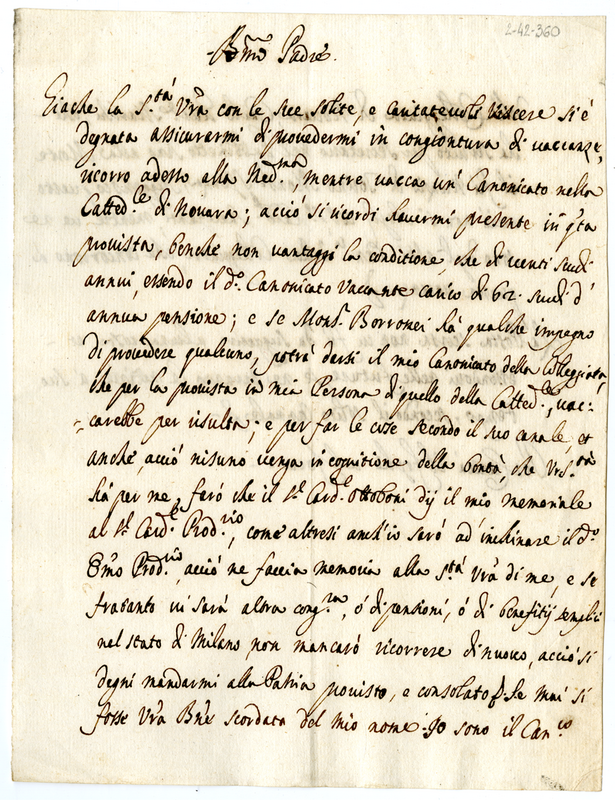 2-42-360
B.mo Padre.
Giache la S.tá Vr̃a con le sue solite, e caritatevoli viscere si é
degnata assicurarmi di provedermi in congiontura di vacanze,
ricorro adesso alla Med.ma, mentre vacca un' Canonicato nella
Catted.le di Novara; acció si ricordi d'havermi presente in q̃ta
provista, benche non vantaggi la conditione, che di venti scudi
annui, essendo il d.o Canonicato Vaccante carico di 62. scudi d'
annua pensione; e se Mons.r Borromei há qualche impegno
di provedere qualcuno, potrá darsi il mio Canonicato della Collegiata,
che per la provista in mia Persona di quello della Catted.le, vac-
carebbe per risulta; e per far le cose secondo il suo canale, et
anche, acció nisuno venga in cognitione della bontá, che Vr̃a S.tá
há per me, faró che il S.r Card.le Ottoboni dij il mio memoriale
al S.r Card.le Prod.rio, come altresi anch'io saró ad' inchinare il d.o
Em̃o Prod.rio, acció ne faccia memoria alla S.tá Vr̃a di me, e se
fratanto vi sará altra cong.ra, ó di pensioni, ó di benefitij semplici
nel stato di Milano, non mancaró ricorrere di nuovo, acció si
degni mandarmi alla Patria provisto, e consolato. Se mai si
fosse Vr̃a Bñe scordata del mio nome. Io sono il Can.co